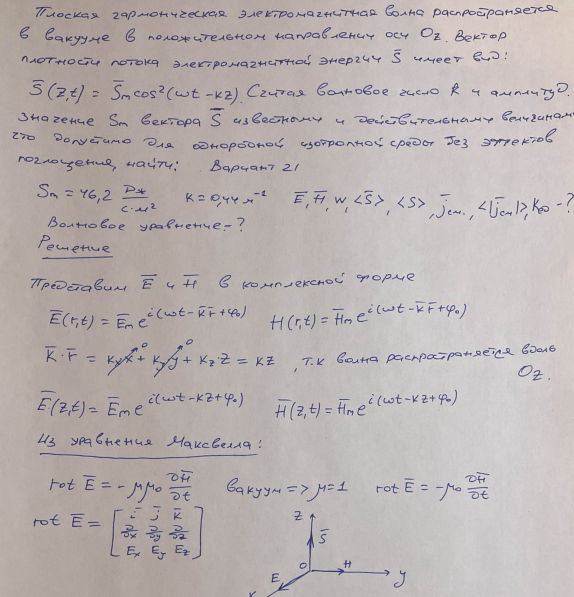 Плоская гармоническая электромагнитная волна распространяется
в вакууме в положительном направлении оси Oz. Вектор
плотности потока электромагнитной энергии S̄ имеет вид:
S̄(z,t) = S̄m cos²(ωt - kz). Считая волновое число k и амплитуд.
значение Sm вектора S̄ известными и действительными величинами
что допустимо для однородной изотропной среды без эффектов
поглощения, найти: Вариант 21
Sm = 46,2 Дж/с·м² k = 0,44 м⁻¹ Ē, H̄, w, <S̄>, <S>, j̄см., <|j̄см|>, Kед -?
Волновое уравнение -?
Решение
Представим Ē и H̄ в комплексной форме
Ē(r,t) = Ēm e^i(ωt - k̄r̄ + φ₀) H(r,t) = H̄m e^i(ωt - k̄r̄ + φ₀)
K̄·r̄ = kx x + ky y + kz·z = kz, т.к волна распространяется вдоль
Oz.
Ē(z,t) = Ēm e^i(ωt - kz + φ₀) H̄(z,t) = H̄m e^i(ωt - kz + φ₀)
Из уравнения Максвелла:
rot Ē = -μμ₀ ∂H̄/∂t вакуум => μ=1 rot Ē = -μ₀ ∂H̄/∂t
rot Ē = [ī j̄ k̄
∂/∂x ∂/∂y ∂/∂z
Ex Ey Ez]
z
S̄
E O H y
x